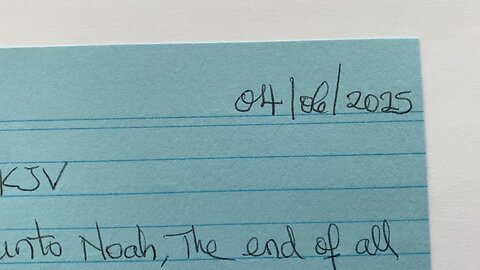 04/06/2025
KJV
unto Noah, The end of all